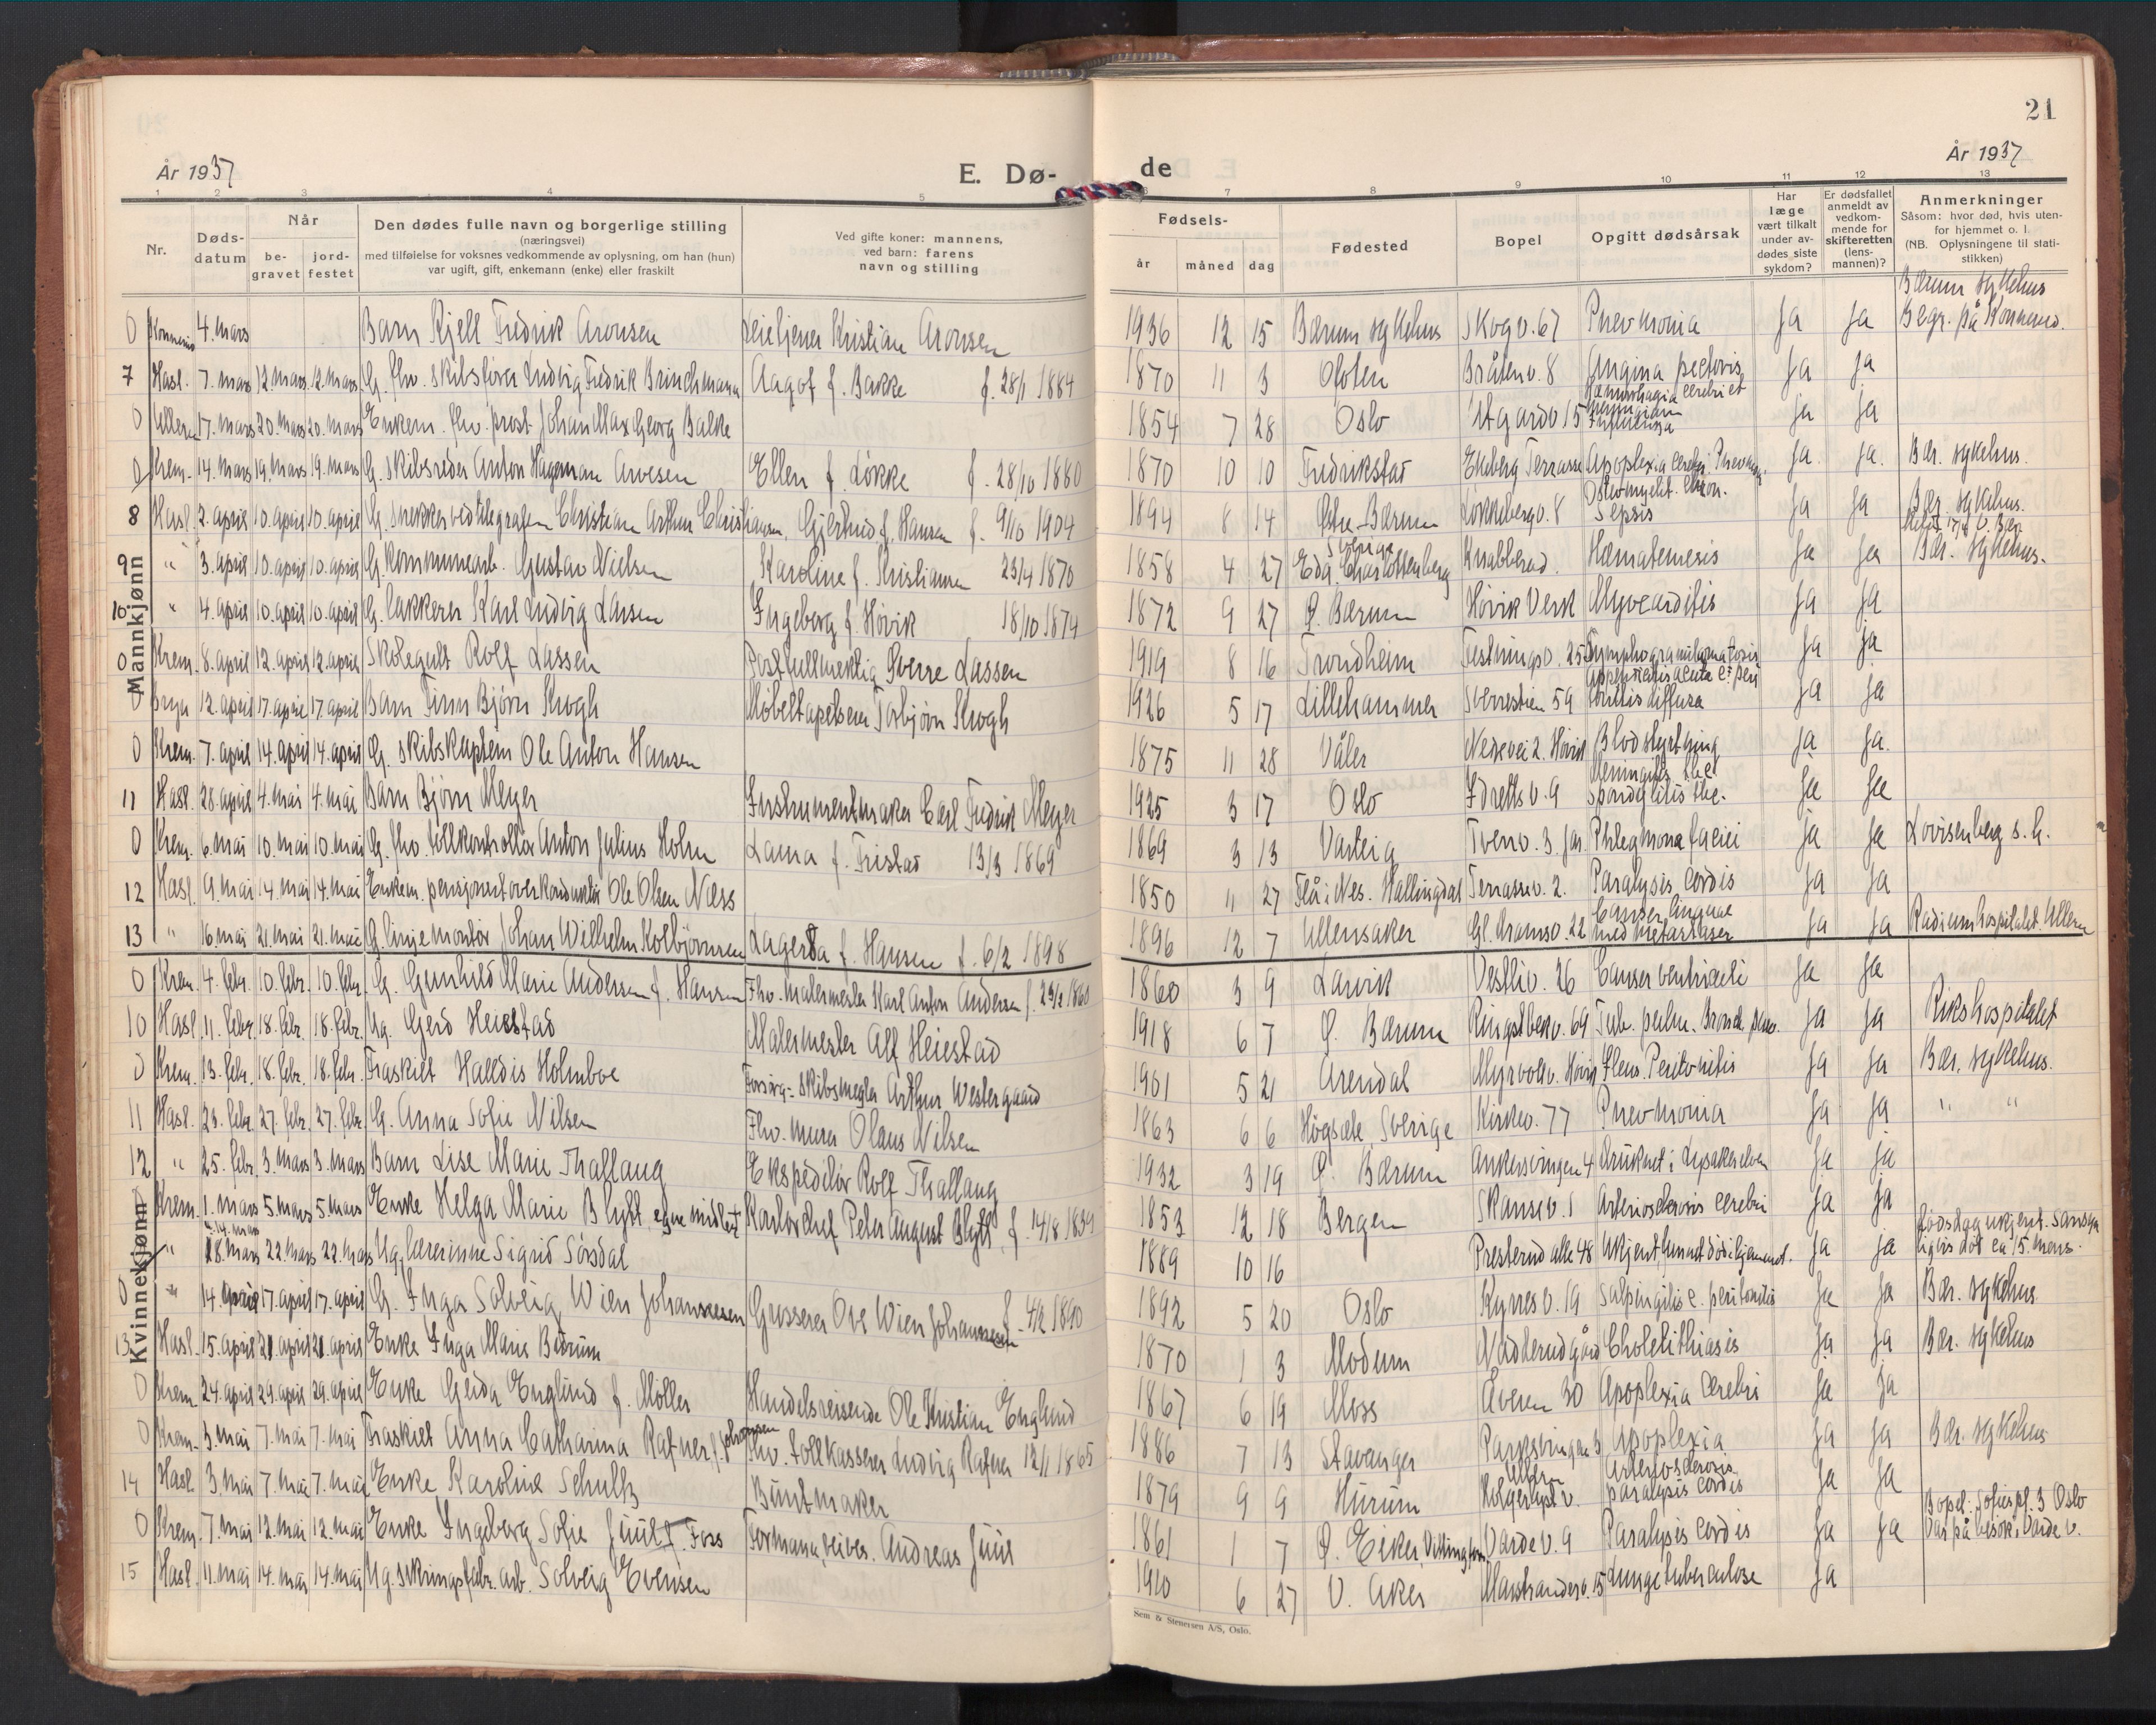 21
År 1937
E. Dø-
de
År 1937
1 2 3 4 5 6 7 8 9 10 11 12 13
Nr.
Døds-
datum
Når
be-
gravet
jord-
festet
Den dødes fulle navn og borgerlige stilling
(næringsvei)
med tilføielse for voksnes vedkommende av oplysning, om han (hun)
var ugift, gift, enkemann (enke) eller fraskilt
Ved gifte koner: mannens,
ved barn: farens
navn og stilling
Fødsels-
år måned dag
Fødested
Bopel
Opgitt dødsårsak
Har
læge
vært tilkalt
under av-
dødes siste
sykdom?
Er dødsfallet
anmeldt av
vedkom-
mende for
skifteretten
(lens-
mannen)?
Anmerkninger
Såsom: hvor død, hvis uten-
for hjemmet o. l.
(NB. Oplysningene til stati-
stikken)
Mannkjønn
0 4. mars Barn Kjell Fredrik Aronsen Kristian Aronsen 1936 12 15 Bærum sykehus Skogv. 67 Pnevmonia Ja Ja Bærum sykehus Begr. på
7 Hasl. 7. mars 12. mars 12. mars G. fhv. skibsfører Ludvig Fredrik Brinchmann Aagot f. Bakke f. 28/1 1884 1870 11 3 Ofoten Bråtenv. 8 Angina pectoris Ja Ja
0 Ullern 17. mars 20. mars 20. mars Enkem. fhv. prost Johan Max Georg Balke 1854 7 28 Oslo Utgardv 15 Hæmorrhagia cerebri et Influenza Ja Ja
0 Krem. 14. mars 19. mars 19. mars G. skibsreder Anton Hageman Arvesen Ellen f. Løkke f. 28/10 1880 1870 10 10 Fredrikstad Ekeberg Terrasse Apoplexia cerebri Pnevmon. Ja Ja. Bær. sykehus.
8 Hasl. 2. april 10. april 10. april G. snekker ved telegrafen Christian Arthur Christiansen, Gjertrud f. Hansen f. 9/10 1904 1894 8 14 Østre Bærum Løkkebergv. 8 Osteomyelit. chron. Sepsis Ja Ja Bær. sykehus.
9 " 3. april 10. april 10. april G. kommunearb. Gustav Nielsen Karoline f. Kristiansen 23/4 1870 1858 4 27 Eda, Charlottenberg Sverige Knabberud. Hæmatemesis Ja Ja Bær. sykehus.
10 " 4. april 10. april 10. april G. lakkerer Karl Ludvig Larsen Ingeborg f. Høvik 18/10 1874 1872 9 27 Ø. Bærum Høvik Verk Myocarditis Ja Ja
0 Krem. 8. april 12. april 12. april Skolegutt Rolf Lassen Postfullmektig Sverre Lassen 1919 8 16 Trondheim Festningsv. 25 Lymphogranulomatosis Ja Ja
0 Bryn 12. april 17. april 17. april Barn Finn Bjørn Skogh Møbeltapetserer Torbjørn Skogh 1926 5 17 Lillehammer Sverrestien 59 Appendicitis acuta c: peri tonitis diffusa Ja Ja
0 Krem. 7. april 14. april 14. april G. skibskaptein Ole Anton Hansen 1875 11 28 Våler Nedrevei 2. Høvik Blodstyrtning Ja Ja.
11 Hasl. 28. april 4. mai 4. mai Barn Bjørn Meyer Instrumentmaker Carl Fredrik Meyer 1925 3 17 Oslo Idrettsv. 9 Meningitis tbc spondylitis tbc. Ja Ja
0 Krem. 6. mai 10. mai 10. mai G. fhv. tollkontrollør Anton Julius Holm Laura f. Fristad 13/3 1869 1869 3 13 Varteig Tverrv. 3. Jar. Phlegmone faciei Ja Ja Lovisenberg s.h.
12 Hasl. 9. mai 14. mai 14. mai Enkem. pensjonert overkonduktør Ole Olsen Næss 1850 11 27 Flå i Nes. Hallingdal Terrassev. 2. Paralysis cordis Ja Ja
13 " 16. mai 21. mai 21. mai G. linjemontør Johan Wilhelm Kolbjørnsen Lagerta f. Hansen f. 6/2 1898 1896 12 7 Ullensaker Gl. Dramsv. 22 Cancer linguae med metastaser Ja Ja Radiumhospitalet. Ullern
Kvinnekjønn
0 Krem. 4. febr. 10. febr. 10. febr. G. Gunhild Marie Andersen f. Hansen Fhv. malermester Karl Anton Andersen f. 23/2 1860 1860 3 9 Larvik Vestliv. 26 Cancer ventriculi Ja Ja
10 Hasl. 11. febr. 18. febr. 18. febr. Ug. Gerd Heiestad Malermester Alf Heiestad 1918 6 7 Ø. Bærum Ringstbekv. 69 Tub. pulm. Bronch. pnev. Ja Ja Rikshospitalet
0 Krem. 13. febr. 18. febr. 18. febr. Fraskilt Halldis Holmboe Forsørg: skibsmegler Arthur Westergaard 1901 5 21 Arendal Myrvollv. Høvik Ileus. Peritonitis Ja Ja Bær. sykehus.
11 Hasl. 23. febr. 27. febr. 27. febr. G. Anna Sofie Nilsen Fhv. murer Olaus Nilsen 1863 6 6 Högsäte, Sverige Kirkev. 77 Pnevmonia Ja Ja " "
12 " 25. febr. 3. mars 3. mars Barn Lise Marie Thallaug Ekspeditør Rolf Thallaug 1932 3 19 Ø. Bærum Ankersvingen 4 Druknet i Lysakerelven Ja Ja
Krem. 1. mars 5. mars 5. mars Enke Helga Marie Blytt egne midler Kontorchef Peter August Blytt, f. 14/8 1839 1853 12 18 Bergen Skansev. 1 Arteriosclerosis cerebri Ja Ja
" 18. mars 22. mars 22. mars Ug. lærerinne Sigrid Sørsdal 1889 10 16 Presterud alle 48 Ukjent, funnet død i hjemmet. Ja Ja Dødsdag ukjent. Sansyn ligvis død ca 15. mars.
0 " 14. april 17. april 17. april G. Inga Solveig Wien Johannessen Grosserer Ove Wien Johannessen f. 4/2 1890 1892 5 20 Oslo Rynes v. 19 Salpingitis c. peritonitis Ja Ja Bær. sykehus
13 Hasl. 15. april 21. april 21. april Enke Inga Marie Butrüm 1870 1 3 Modum Nadderud gård Cholelithiasis Ja Ja Bær. sykehus
0 Krem. 24. april 29. april 29. april Enke Gerda Englund f. Møller Handelsreisende Ole Kristian Englund 1867 6 19 Moss Åveien 30 Apoplexia cerebri Ja Ja
0 Krem. 3. mai 7. mai 7. mai Fraskilt Anna Catharina Rafner f. Johannsen Fhv. tollkasserer Ludvig Rafner 12/1 1865 1886 7 13 Stavanger Parksvingen 3 Apoplexia Ja Ja Bær. sykehus
14 Hasl. 3. mai 7. mai 7. mai Enke Karoline Schultz Buntmaker 1879 9 9 Hurum Holgerslyst v. Arteriosclerosis. paralysis cordis Ja Ja
0 Krem. 7. mai 12. mai 12. mai Enke Ingeborg Sofie Juul f. Foss Formann, veives. Andreas Juul 1861 1 7 Ø. Eiker, Vardev. 9 Paralysis cordis Ja Ja Bopel: Sofiespl. 3 Oslo Var på besøk i Varde v.
15 Hasl. 11. mai 14. mai 14. mai Ug. sikringsfabr. arb. Solveig Evensen 1910 6 27 V. Aker Marstranderv. 15 Lungetuberculose Ja
Sem & Stenersen A/S, Oslo.